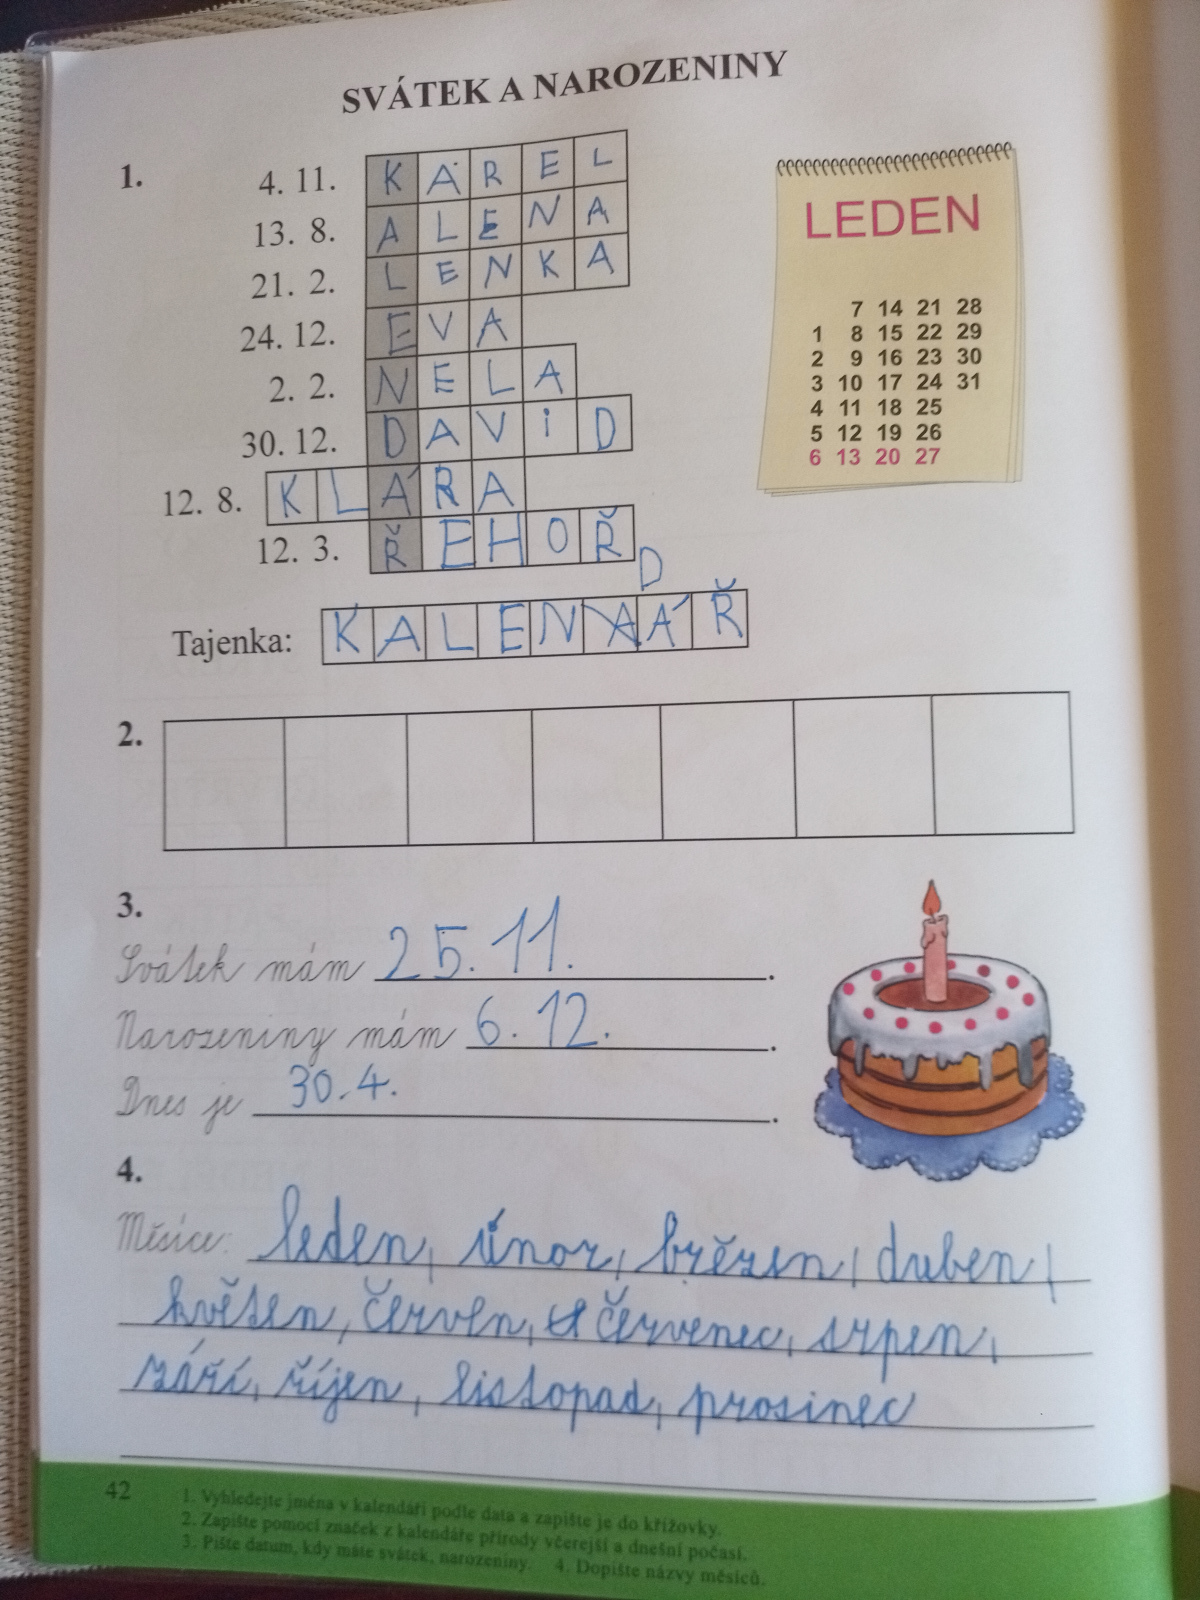 SVÁTEK A NAROZENINY
1.
4. 11. KAREL
13. 8. ALENA
21. 2. LENKA
24. 12. EVA
2. 2. NELA
30. 12. DAVID
12. 8. KLÁRA
12. 3. ŘEHOŘ
LEDEN
7 14 21 28
1 8 15 22 29
2 9 16 23 30
3 10 17 24 31
4 11 18 25
5 12 19 26
6 13 20 27
D
Tajenka: KALENAÁŘ
2.
3.
Svátek mám 25. 11. .
Narozeniny mám 6. 12. .
Dnes je 30. 4. .
4.
Měsíce: leden, únor, březen, duben,
květen, červen, červenec, srpen,
září, říjen, listopad, prosinec
42
1. Vyhledejte jména v kalendáři podle data a zapište je do křížovky.
2. Zapište pomocí značek z kalendáře přírody včerejší a dnešní počasí.
3. Pište datum, kdy máte svátek, narozeniny. 4. Dopište názvy měsíců.